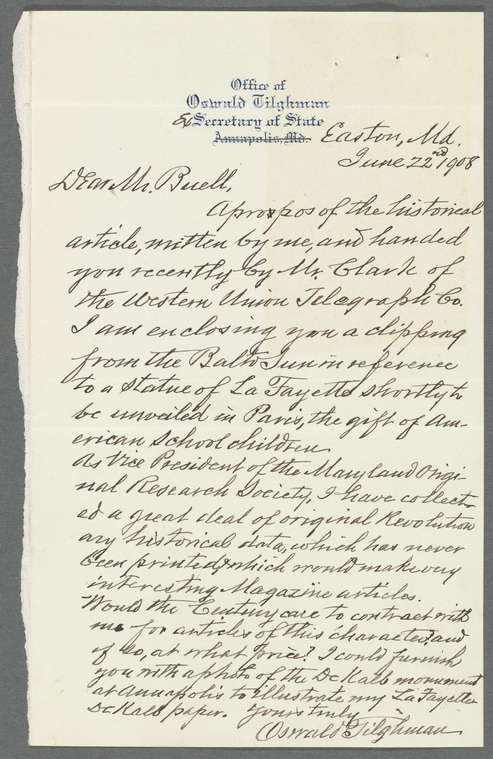 Office of
Oswald Tilghman
Ex Secretary of State
Annapolis, Md. Easton, Md.
June 22nd 1908
Dear Mr. Buell,
Apropos of the historical
article, written by me, and handed
you recently by Mr. Clark of
the Western Union Telegraph Co.
I am enclosing you a clipping
from the Balto Sun in reference
to a statue of La Fayette shortly to
be unveiled in Paris, the gift of Am-
erican School children
As Vice President of the Maryland Origi-
nal Research Society, I have collect-
ed a great deal of original Revolution
ary historical data, which has never
been printed, & which would make very
interesting Magazine articles.
Would the Century care to contract with
me for articles of this character, and
if so, at what price? I could furnish
you with a photo of the De Kalb monument
at Annapolis to illustrate my La Fayette
De Kalb paper. Yours truly,
Oswald Tilghman